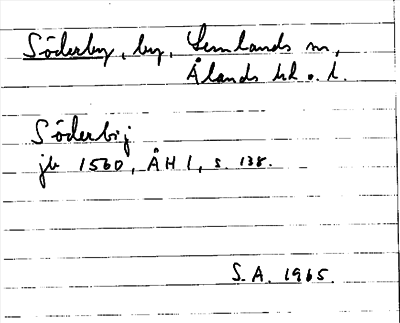 Söderby, by, Lemlands sn,
Ålands hd o. l.
Söderbij
jb 1560, ÅH 1, s. 138.
S.A. 1965.